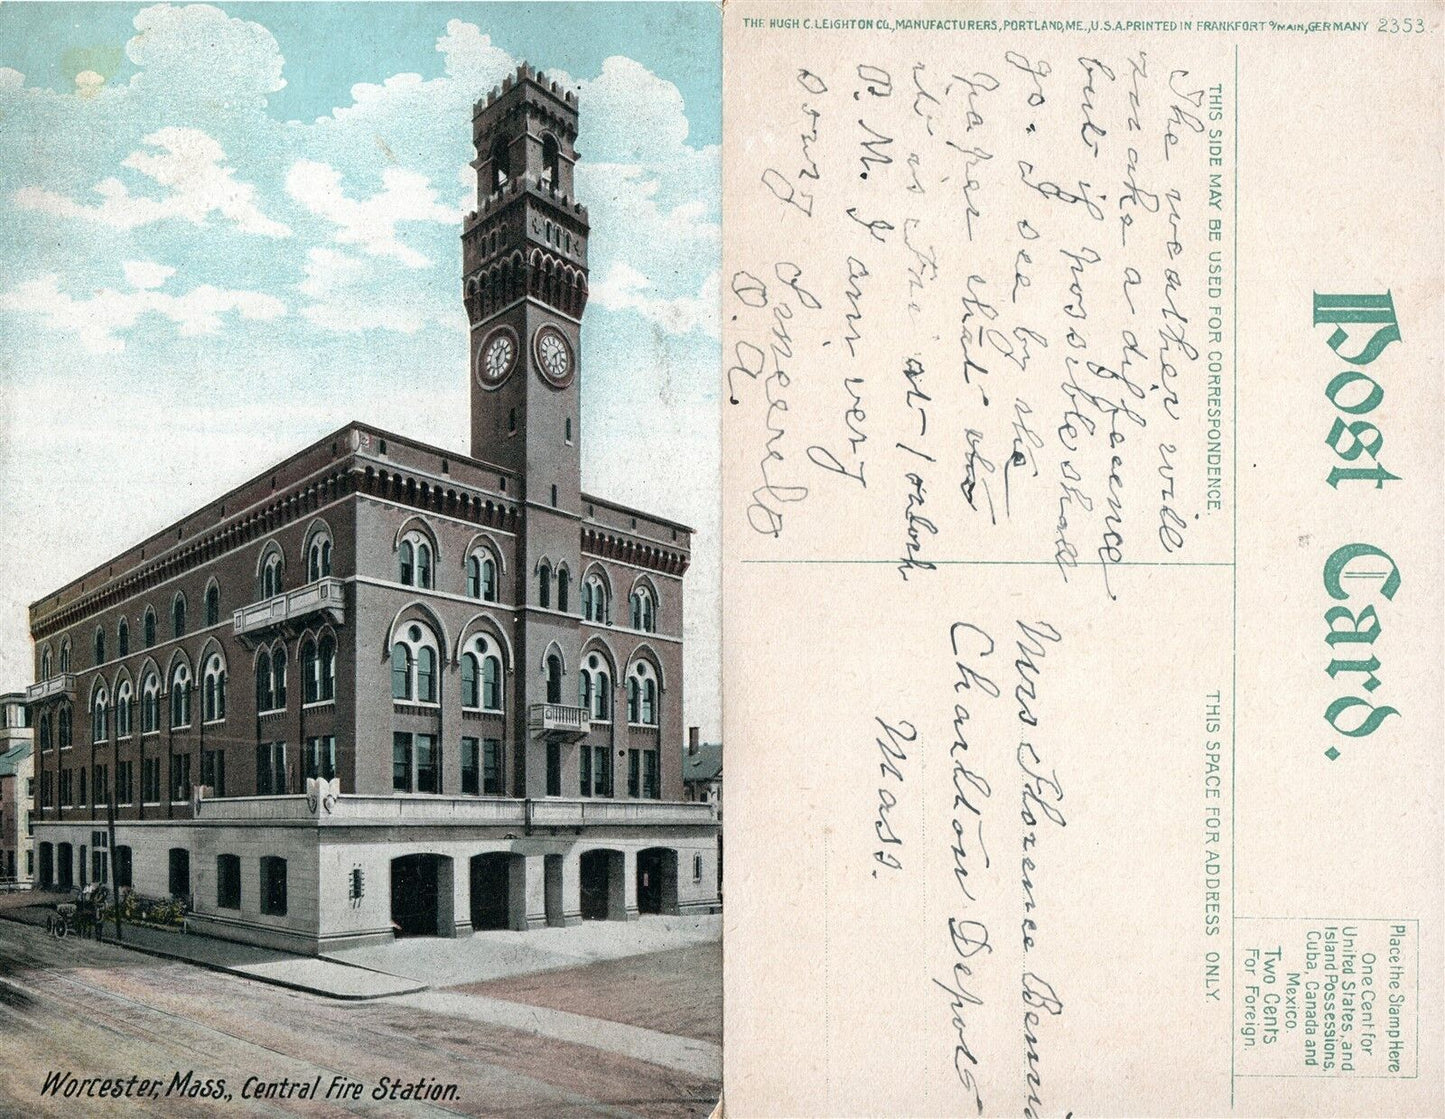 Worcester, Mass., Central Fire Station.
THE HUGH C. LEIGHTON CO., MANUFACTURERS, PORTLAND, ME., U.S.A. PRINTED IN FRANKFORT o/MAIN, GERMANY 2353.
Post Card.
Place the Stamp Here
One Cent for
United States, and
Island Possessions,
Cuba, Canada and
Mexico.
Two Cents
For Foreign.
THIS SIDE MAY BE USED FOR CORRESPONDENCE.
THIS SPACE FOR ADDRESS ONLY.
The weather will
make a difference
but if possible shall
go. I see by the
paper that
is at 1 oclock
P. M. I am very
sorry
Sincerely
Mrs Florence
Charlton Depot
Mass.